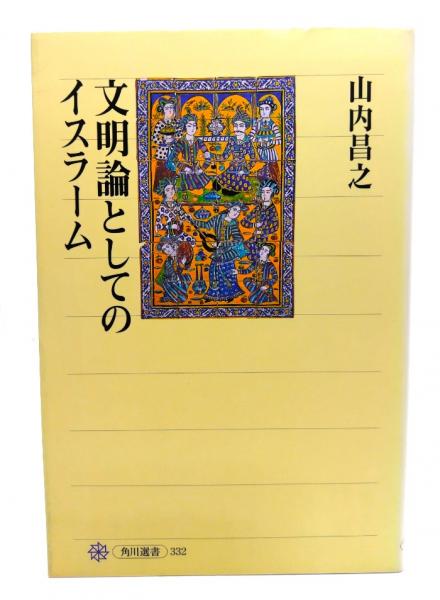 山内昌之
文明論としての
イスラーム
角川選書 332